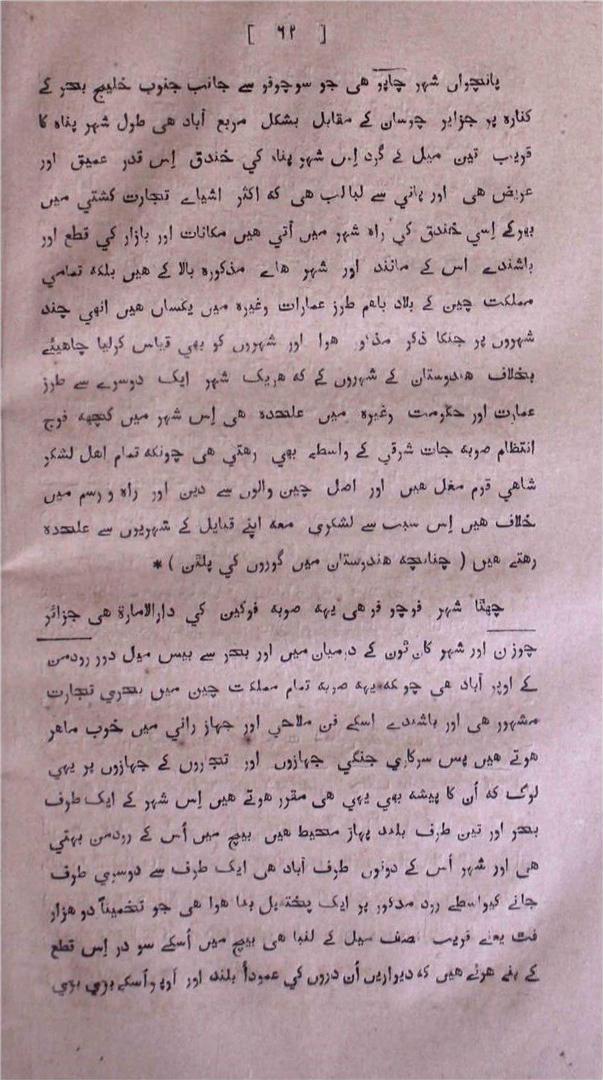 [ ٦٢ ]
پانچواں شہر چاپر هی جو سوچوفو سے جانب جنوب خلیج بحر کے
کنارہ پر جزایر چوسان کے مقابل بشکل مربع آباد هی طول شہر پناہ کا
قریب تین میل کے گرد اِس شہر پناہ کي خندق اِس قدر عمیق اور
عریض هی اور پاني سے لبالب هی کہ اکثر اشیاے تجارت کشتي میں
بھرکے اِسي خندق کي راہ شہر میں آتي هیں مکانات اور بازار کي قطع اور
باشندے اس کے مانند اور شہر هاے مذکورہ بالا کے هیں بلکہ تمامي
مملکت چین کے بلاد باهم طرز عمارات وغیرہ میں یکساں هیں انهي چند
شہروں پر جنکا ذکر هوا اور شہروں کو بھي قیاس کرلیا چاهیئے
بخلاف هندوستان کے شہروں کے کہ هریک شہر ایک دوسرے سے طرز
عمارت اور حکومت وغیرہ میں علحدہ هی اِس شہر میں کچھہ فوج
انتظام صوبہ جات شرقي کے واسطے بھي رهتي هی چونکہ تمام اهل لشکر
شاهي قوم مغل هیں اور اصل چین والوں سے دین اور راہ و رسم میں
خلاف هیں اِس سبب سے لشکري معہ اپنے قبایل کے شہریوں سے علحدہ
رهتے هیں ( چنانچہ هندوستان میں گوروں کي پلٹن ) *
چھٹا شہر فوچو فو هی یہہ صوبہ فوکین کي دارالامارۃ هی جزائر
چوزن اور شہر کان ٹون کے درمیان میں اور بحر سے بیس میل دور رودمن
کے اوپر آباد هی چونکہ یہہ صوبہ تمام مملکت چین میں بحري تجارت
مشہور هی اور باشندے اسکے فن ملاحي اور جہاز راني میں خوب ماهر
هوتے هیں پس سرکاري جنگي جہازوں اور تاجروں کے جہازوں پر یہي
لوگ کہ اُن کا پیشہ بھي یہي هی مقرر هوتے هیں اِس شہر کے ایک طرف
بحر اور تین طرف بلند پہاڑ محیط هیں بیچ میں اُس کے رودمن بہتي
هی اور شہر اُس کے دونوں طرف آباد هی ایک طرف سے دوسري طرف
جانے کیواسطے رود مذکور پر ایک پختہ پل بنا هوا هی جو تخمیناً دو هزار
فٹ یعنے قریب نصف میل کے لنبا هی بیچ میں اُسکے سو در اِس قطع
کے بنے هوئے هیں کہ دیواریں اُن دروں کي عموداً بلند اور اوپر اُسکے بڑي بڑي